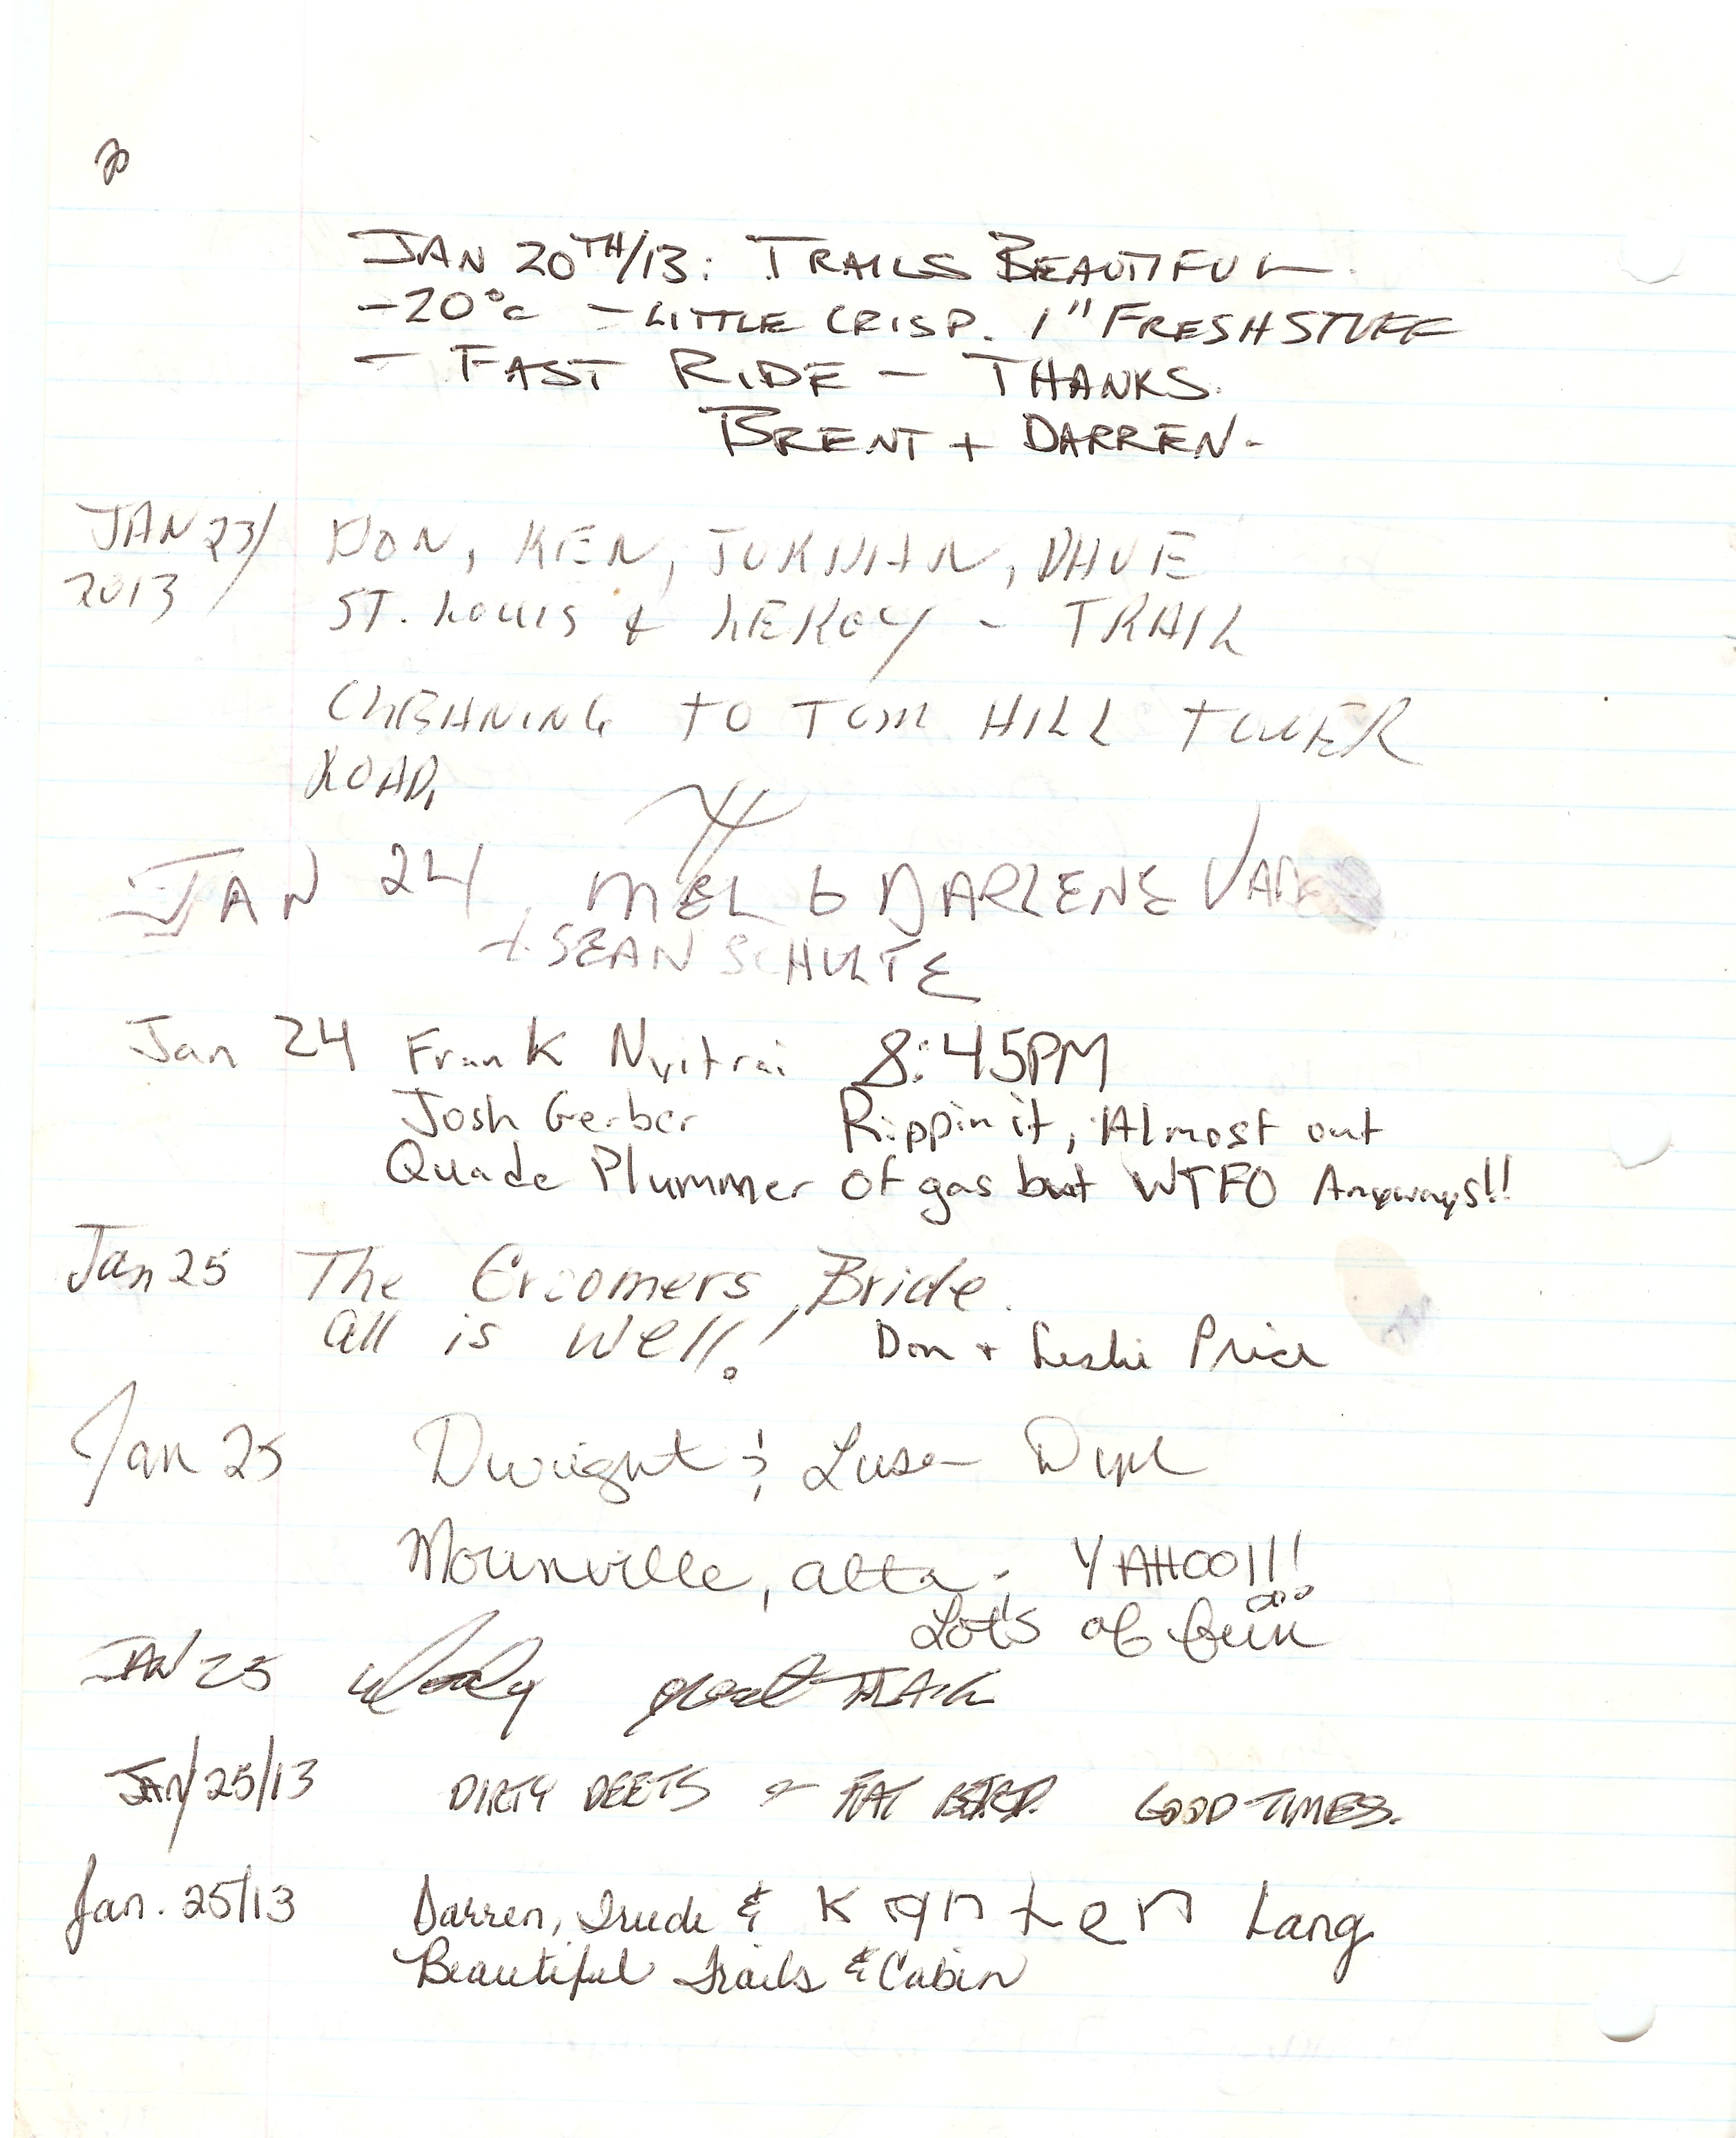 JAN 20TH/13: TRAILS BEAUTIFUL.
-20°C - LITTLE CRISP. 1" FRESH STUFF
- FAST RIDE - THANKS.
BRENT + DARREN-
JAN 23/ 2013 DON, KEN, JORDAN, DAVE
ST. LOUIS & LEROY - TRAIL
CLEANING TO TOM HILL TOWER
ROAD.
JAN 24, MEL & DARLENE
+ SEAN SCHULTE
Jan 24 Frank Nyitrai 8:45PM
Josh Gerber Rippin it, Almost out
Quade Plummer of gas but WTFO Anyways!!
Jan 25 The Groomers Bride.
All is well! Don + Leslie Price
Jan 25 Dwight &
Mournville, Alta. YAHOO!!!
Lot's of fun
JAN 25 great TRAIL
JAN/25/13 DIRTY DEETS & FAT BIRD. GOOD TIMES.
Jan. 25/13 Darren, Trude & Kanten Lang
Beautiful Trails & Cabin